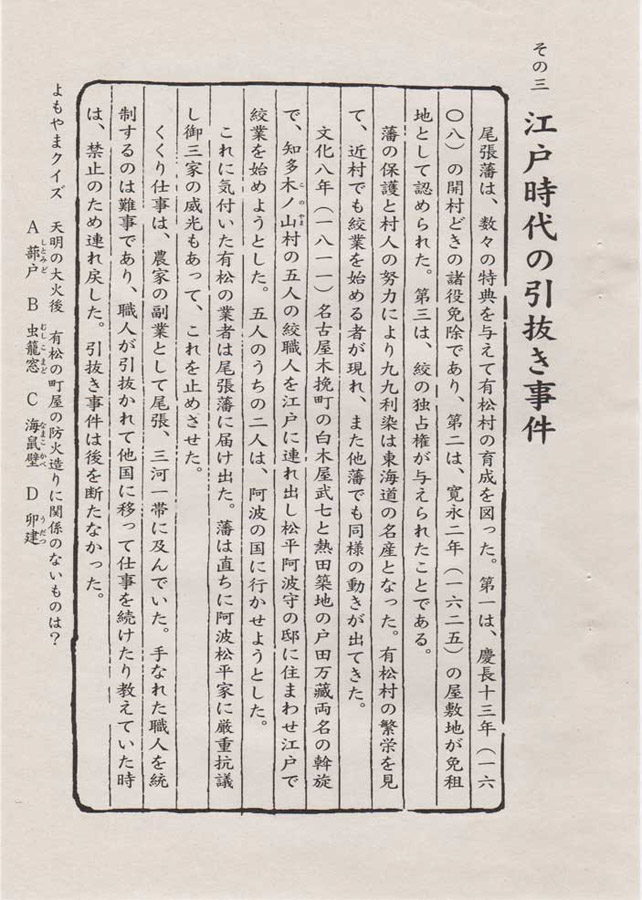 その三　江戸時代の引抜き事件
尾張藩は、数々の特典を与えて有松村の育成を図った。第一は、慶長十三年（一六
〇八）の開村どきの諸役免除であり、第二は、寛永二年（一六二五）の屋敷地が免租
地として認められた。第三は、絞の独占権が与えられたことである。
藩の保護と村人の努力により九九利染は東海道の名産となった。有松村の繁栄を見
て、近村でも絞業を始める者が現れ、また他藩でも同様の動きが出てきた。
文化八年（一八一一）名古屋木挽町の白木屋武七と熱田築地の戸田万蔵両名の斡旋
で、知多木ノ山村の五人の絞職人を江戸に連れ出し松平阿波守の邸に住まわせ江戸で
絞業を始めようとした。五人のうちの二人は、阿波の国に行かせようとした。
これに気付いた有松の業者は尾張藩に届け出た。藩は直ちに阿波松平家に厳重抗議
し御三家の威光もあって、これを止めさせた。
くくり仕事は、農家の副業として尾張、三河一帯に及んでいた。手なれた職人を統
制するのは難事であり、職人が引抜かれて他国に移って仕事を続けたり教えていた時
は、禁止のため連れ戻した。引抜き事件は後を断たなかった。
よもやまクイズ　天明の大火後　有松の町屋の防火造りに関係のないものは？
A 蔀戸　B 虫籠窓　C 海鼠壁　D 卯建